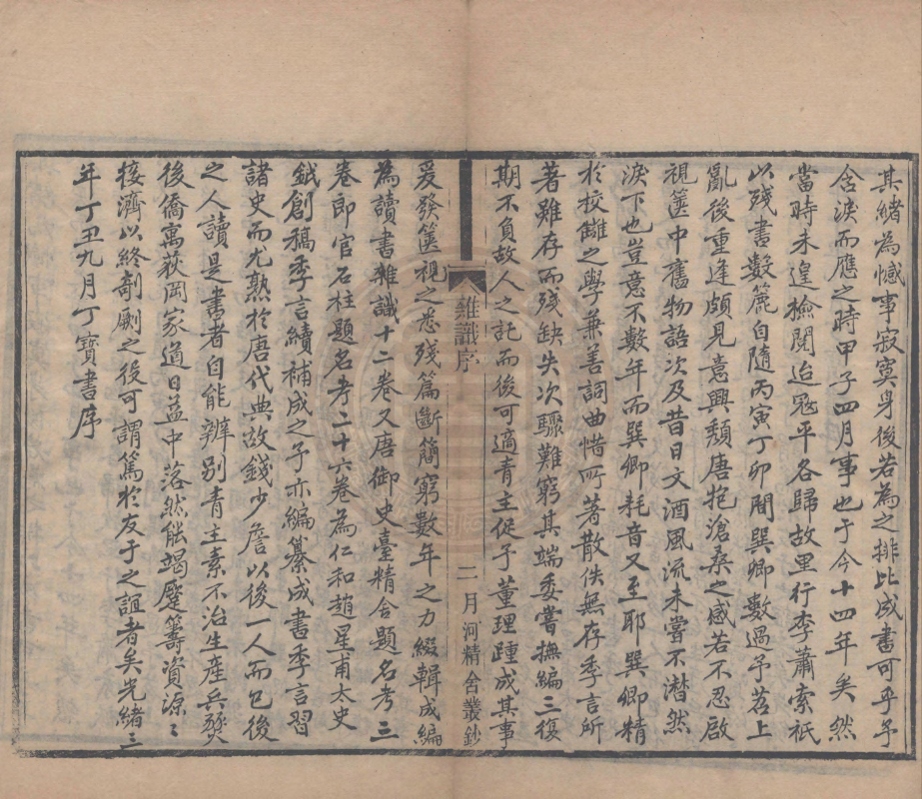 其緒為憾事寂寞身後若為之排比成書可乎予
含淚而應之時甲子四月事也于今十四年矣然
當時未遑檢閱迨冦平各歸故里行李蕭索祇
以殘書數簏自隨丙寅丁卯間巽卿數過予苕上
亂後重逢頗見意興頹唐抱滄桑之感若不忍啟
視篋中舊物語次及昔日文酒風流未嘗不潸然
淚下也豈意不數年而巽卿耗音又至耶巽卿精
於校讎之學兼善詞曲惜所著散佚無存季言所
著雖存而殘缺失次驟難窮其端委嘗撫編三復
期不負故人之託而後可適青主促予董理踵成其事
雜識序
二
月河精舍叢鈔
爰發篋視之悉殘篇斷簡窮數年之力綴輯成編
為讀書雜識十二卷又唐御史臺精舍題名考三
卷郎官石柱題名考二十六卷為仁和趙星甫太史
鉞創稿季言續補成之予亦編纂成書季言習
諸史而尤熟於唐代典故錢少詹以後一人而已後
之人讀是書者自能辨别青主素不治生產兵燹
後僑寓荻岡家道日益中落然能竭蹷籌資源〻
接濟以終剞劂之役可謂篤於友于之誼者矣光緒三
年丁丑九月丁寶書序